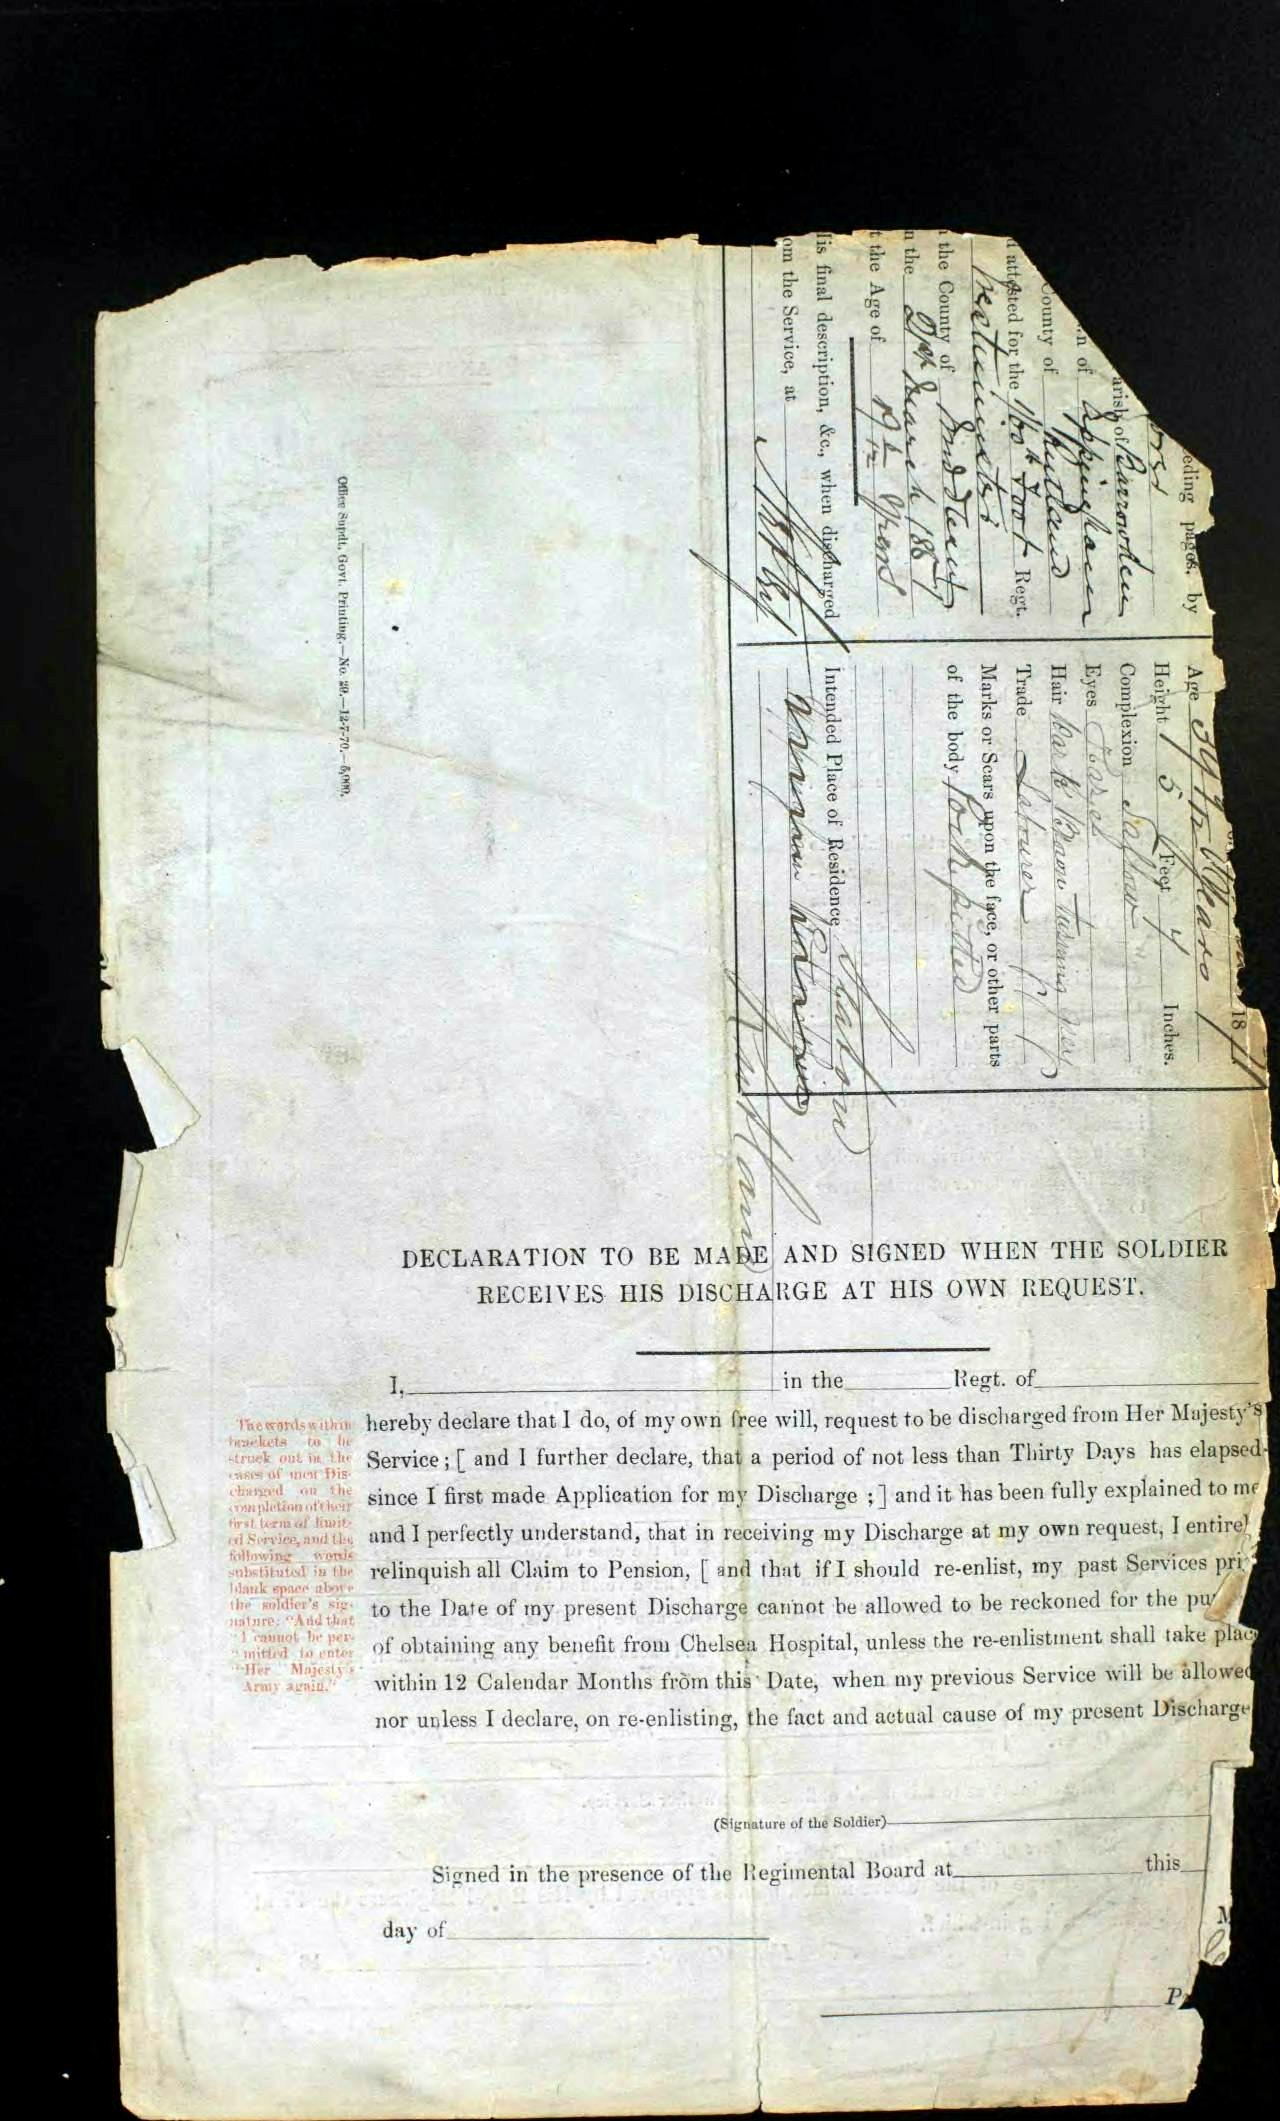 eding pages, by
arish of Barrowden
n of Uppingham
County of Rutland
d attested for the 100th Foot Regt.
Westminster
n the County of Middlesex
n the 9th March 185
t the Age of 19 Years
His final description, &c., when discharged
om the Service, at
18 71
Age Years
Height 5 Feet 4 Inches.
Complexion Sallow
Eyes Hazel
Hair Dark Brown Turning Grey
Trade Labourer
Marks or Scars upon the face, or other parts
of the body Pock pitted
Intended Place of Residence Seaton
Uppingham
Rutland
Office Supdt. Govt. Printing.—No. 20.—12-7-70.—5,000.
DECLARATION TO BE MADE AND SIGNED WHEN THE SOLDIER
RECEIVES HIS DISCHARGE AT HIS OWN REQUEST.
I, in the Regt. of
hereby declare that I do, of my own free will, request to be discharged from Her Majesty's
Service; [ and I further declare, that a period of not less than Thirty Days has elapsed
since I first made Application for my Discharge ; ] and it has been fully explained to me
and I perfectly understand, that in receiving my Discharge at my own request, I entirel
relinquish all Claim to Pension, [ and that if I should re-enlist, my past Services pri
to the Date of my present Discharge cannot be allowed to be reckoned for the pu
of obtaining any benefit from Chelsea Hospital, unless the re-enlistment shall take plac
within 12 Calendar Months from this Date, when my previous Service will be allowed
nor unless I declare, on re-enlisting, the fact and actual cause of my present Discharge
The words within
brackets to be
struck out in the
cases of men Dis-
charged on the
completion of their
first term of limit-
ed Service, and the
following words
substituted in the
blank space above
the soldier's sig-
nature: "And that
"I cannot be per-
"mitted to enter
"Her Majesty's
Army again."
(Signature of the Soldier)
Signed in the presence of the Regimental Board at this
day of
P